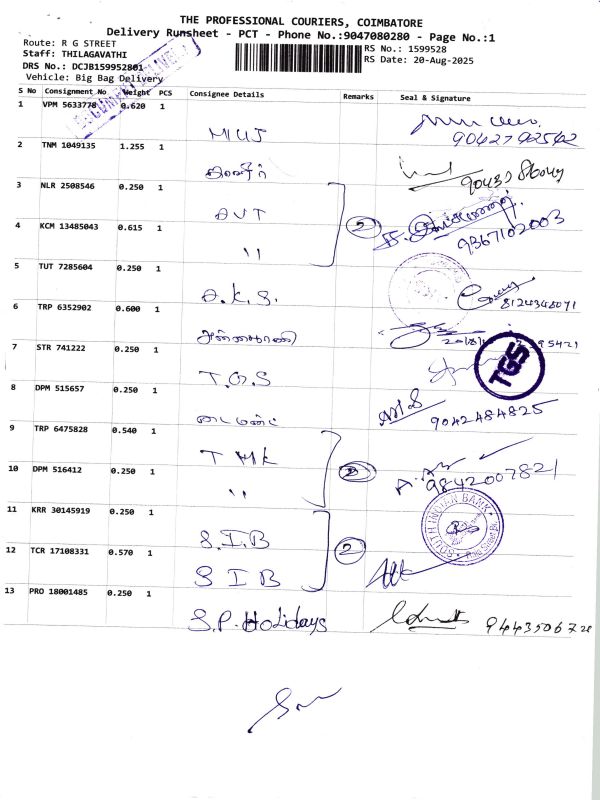 THE PROFESSIONAL COURIERS, COIMBATORE
Delivery Runsheet - PCT - Phone No.:9047080280 - Page No.:1
Route: R G STREET RS No.: 1599528
Staff: THILAGAVATHI RS Date: 20-Aug-2025
DRS No.: DCJB159952801
Vehicle: Big Bag Delivery
S No Consignment No Weight PCS Consignee Details Remarks Seal & Signature
1 VPM 5633778 0.620 1
9042792542
2 TNM 1049135 1.255 1
3 NLR 2508546 0.250 1
AVT
4 KCM 13485043 0.615 1 2
" 9367102003
5 TUT 7285604 0.250 1
A.K.S. 8124348071
6 TRP 6352902 0.600 1
அன்னபூரணி
7 STR 741222 0.250 1
T.G.S TGS
8 DPM 515657 0.250 1
டைமண்ட் 9042484825
9 TRP 6475828 0.540 1
TMK
10 DPM 516412 0.250 1 2
" 9842007821
11 KRR 30145919 0.250 1
S.I.B SOUTH INDIAN BANK
12 TCR 17108331 0.570 1 2
S I B
13 PRO 18001485 0.250 1
S.P. Holidays